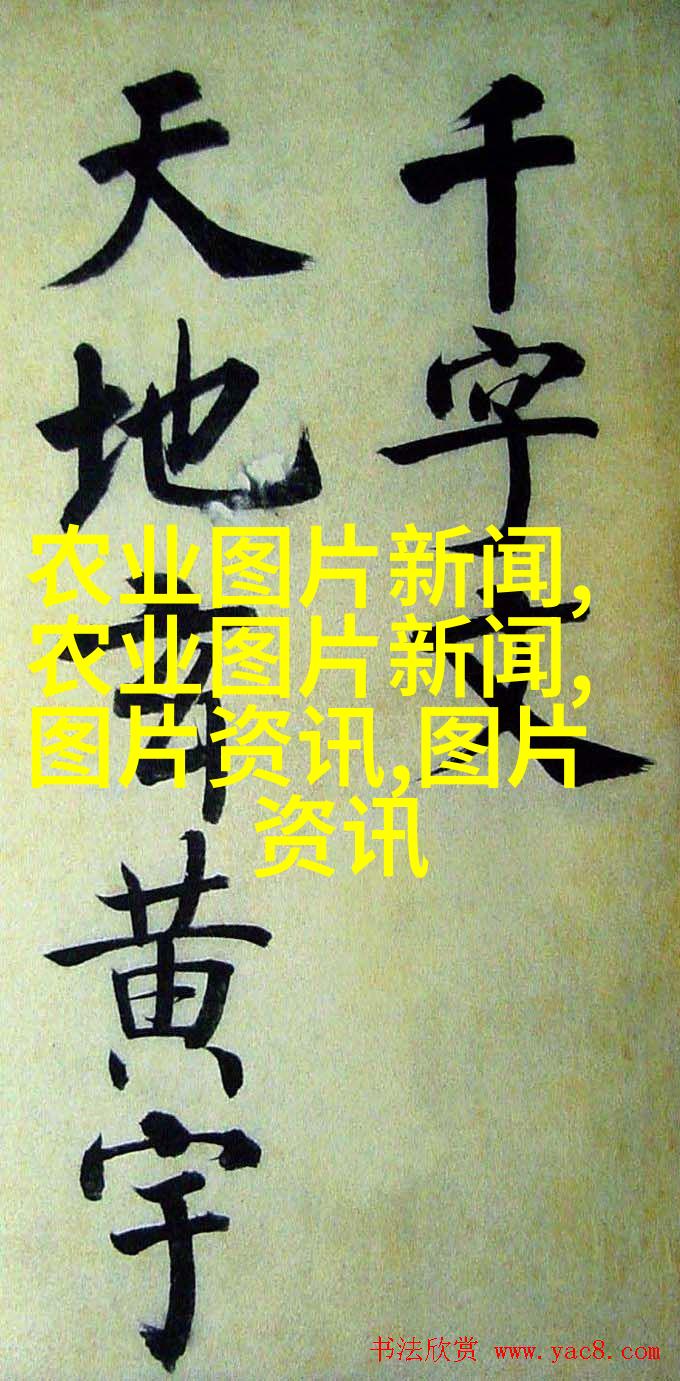 千字文
天地黄宇
农业图片新闻,
农业图片新闻,
图片资讯,图片
资讯
书法欣赏 www.yac8.com